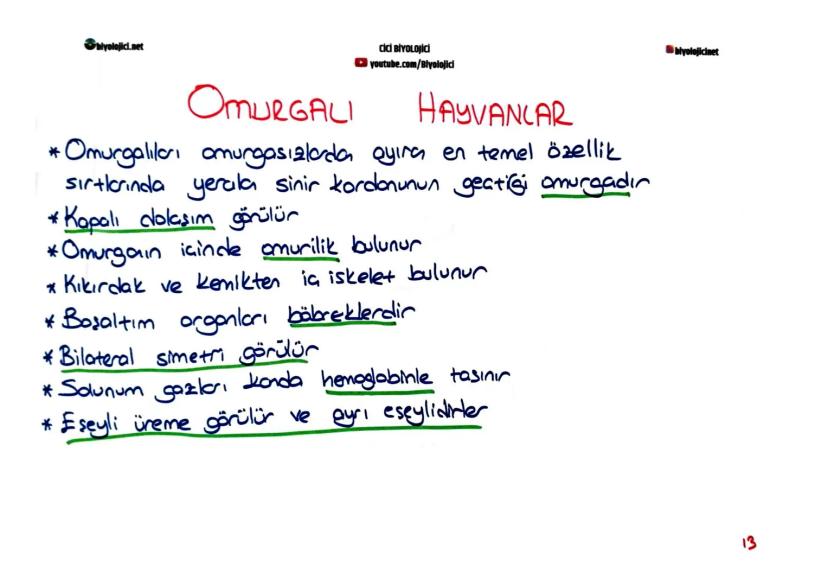 biyolojici.net
CİCİ BİYOLOJİCİ
youtube.com/Biyolojici
biyolojicinet
OMURGALI HAYVANLAR
* Omurgalıları omurgasızlarda ayıran en temel özellik
sırtlarında yeralan sinir kordonunun geçtiği omurgadır
* Kapalı dolaşım görülür
* Omurganın içinde omurilik bulunur
* Kıkırdak ve kemikten iç iskelet bulunur
* Boşaltım organları böbreklerdir
* Bilateral simetri görülür
* Solunum gazları kanda hemoglobinle taşınır
* Eşeyli üreme görülür ve ayrı eşeylidirler
13